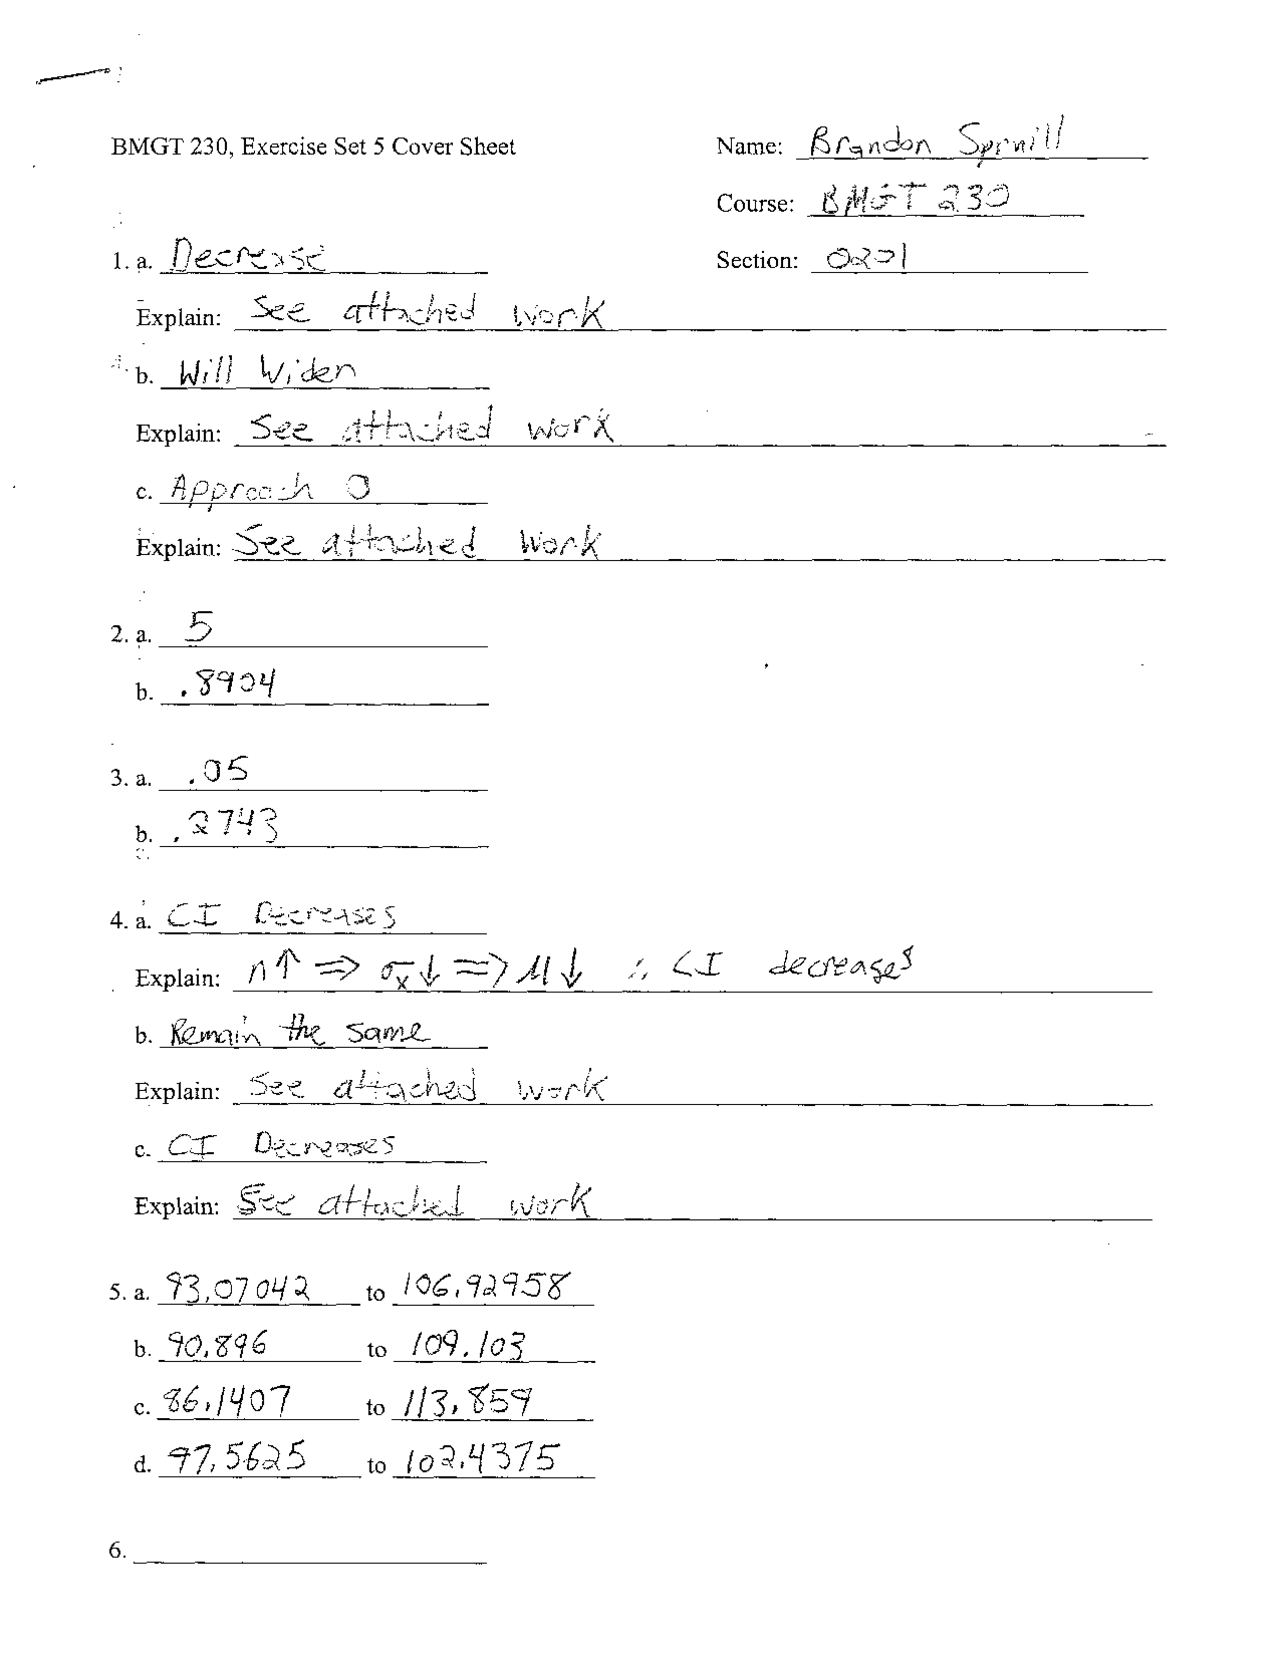 BMGT 230, Exercise Set 5 Cover Sheet
Name: Brandon Spruill
Course: BMGT 230
Section: 0201
1. a. Decrease
Explain: See attached work
b. Will Widen
Explain: See attached work
c. Approach 0
Explain: See attached work
2. a. 5
b. .8904
3. a. .05
b. .2743
4. a. CI Decreases
Explain: n↑ ⇒ σx↓ ⇒ M↓ ∴ CI decreases
b. Remain the same
Explain: See attached work
c. CI Decreases
Explain: See attached work
5. a. 93.07042 to 106.92958
b. 90.896 to 109.103
c. 86.1407 to 113.859
d. 97.5625 to 102.4375
6.